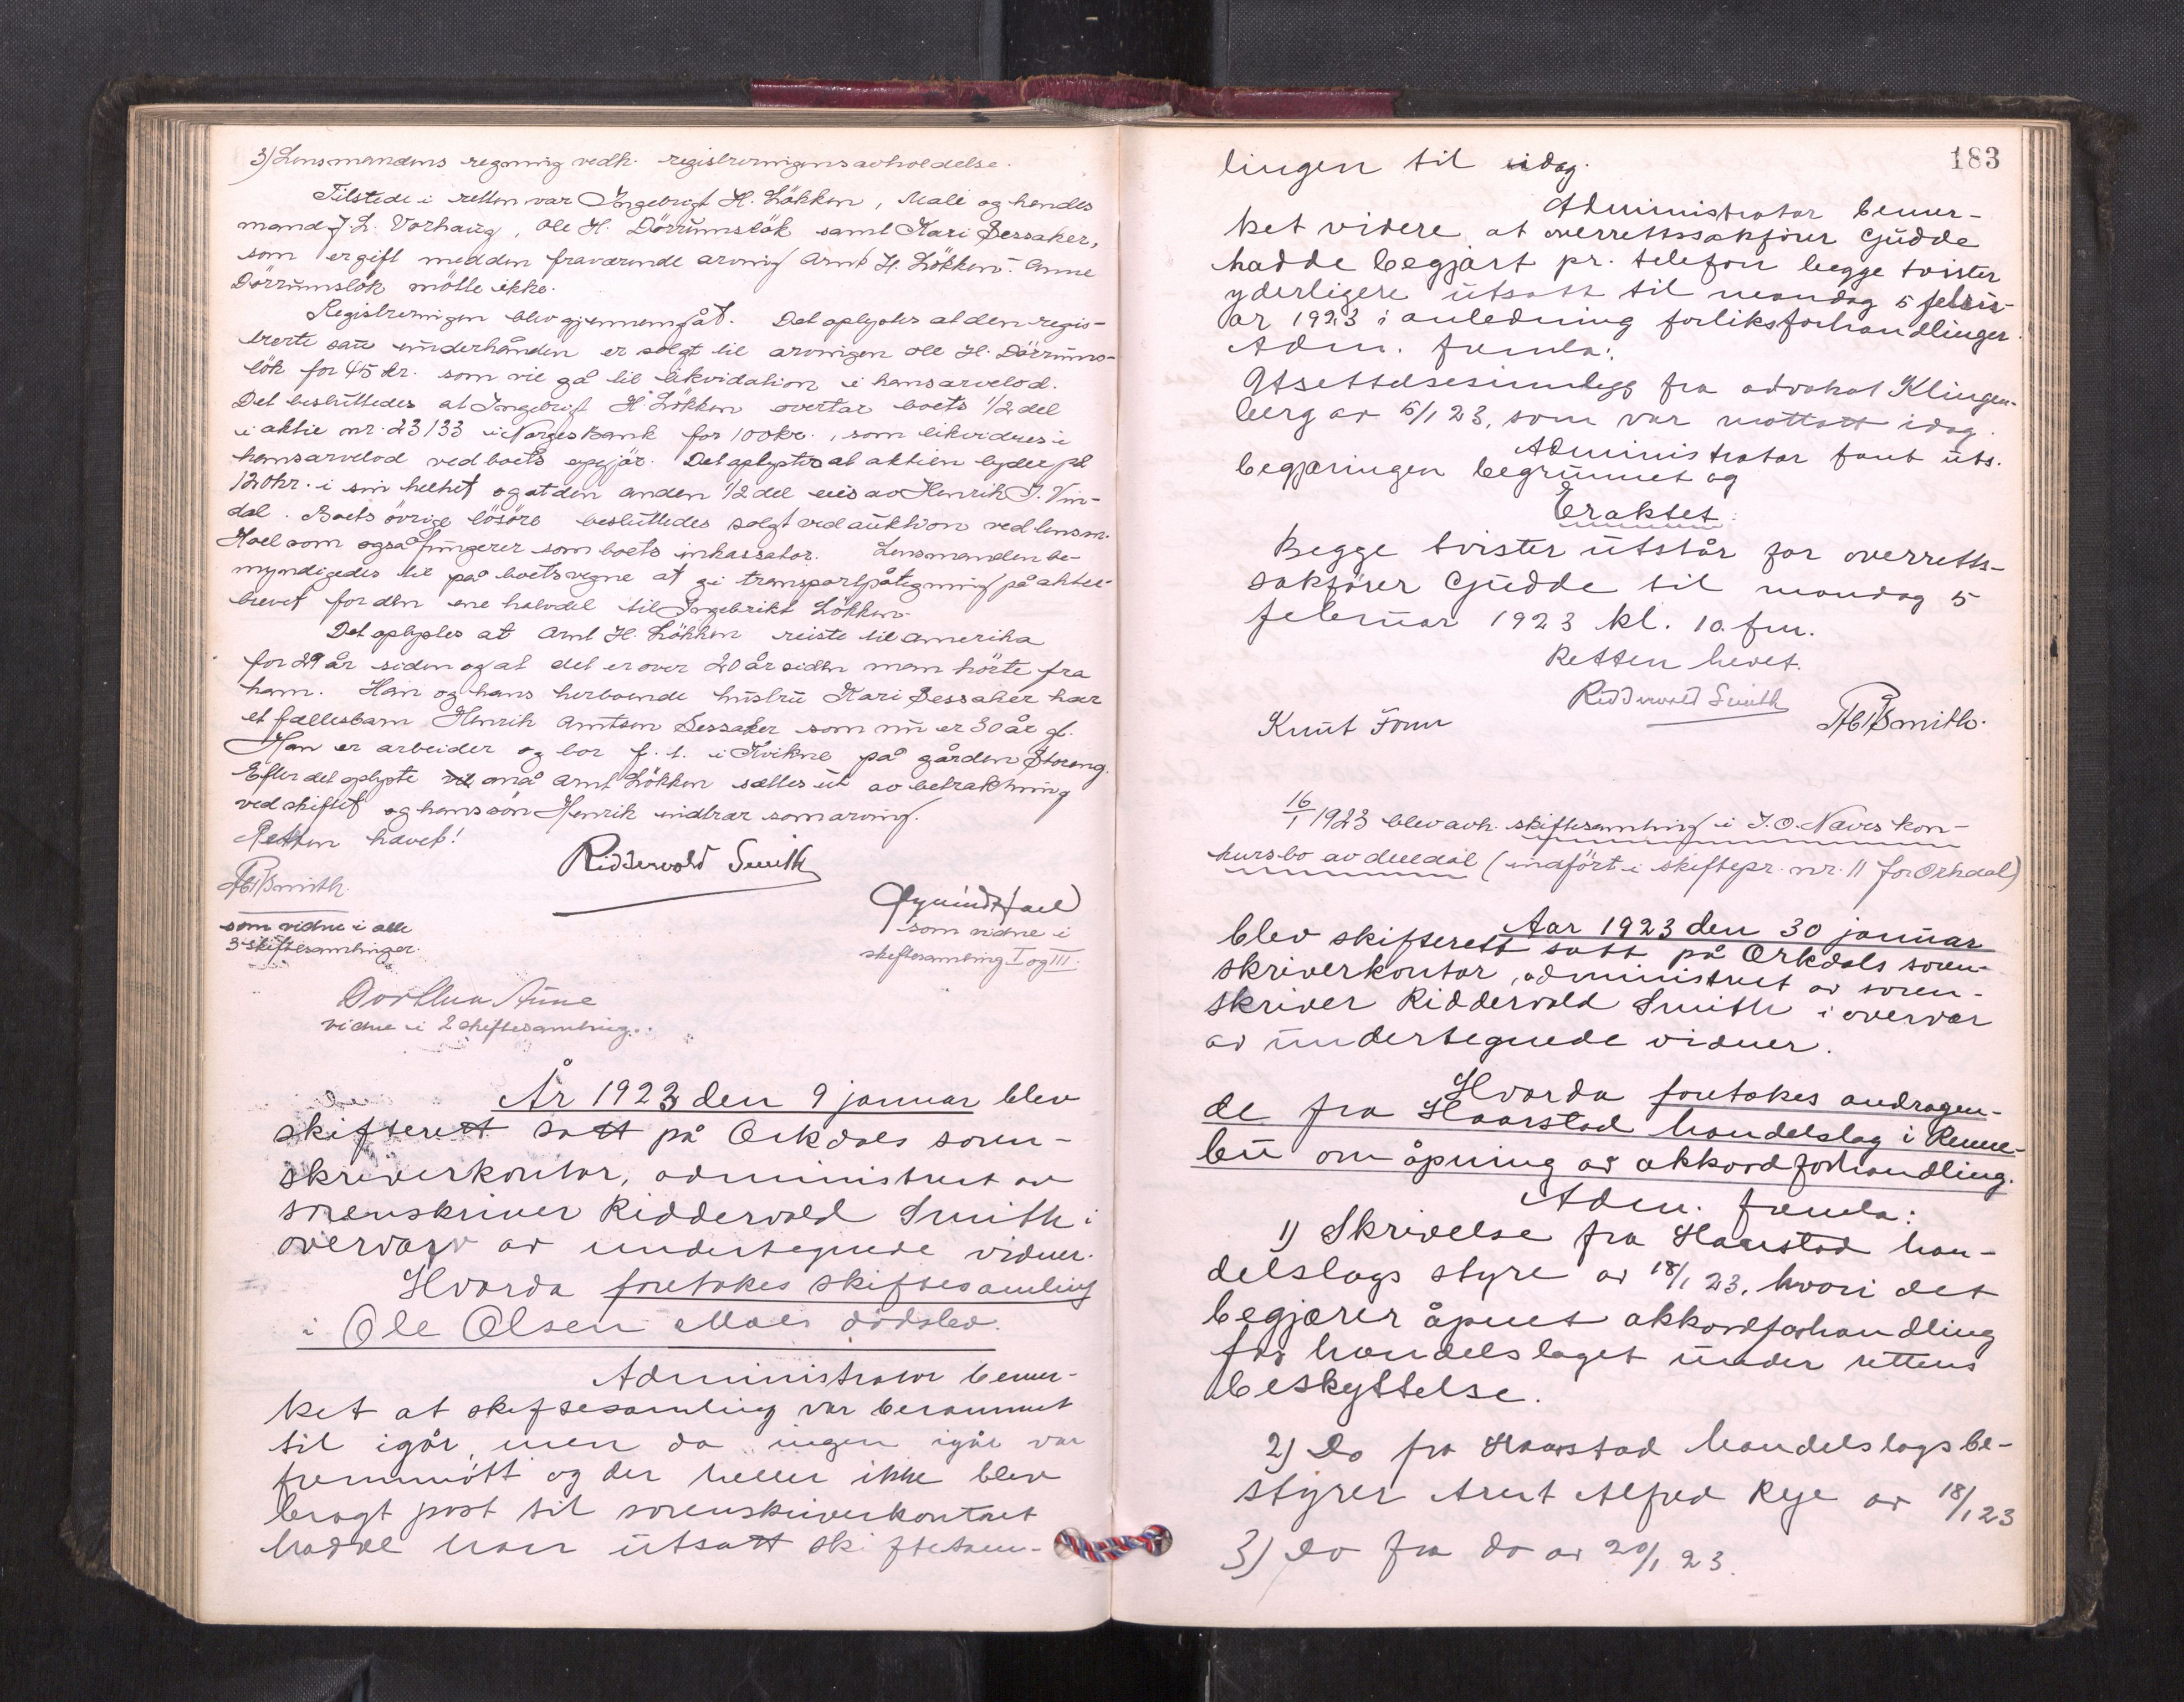 3) Lensmandens regning vedk. registreringens avholdelse.
Tilstede i retten var Ingebrigt H. Lökken, Mali og hendes
mand J. L. Vorhaug, Ole H. Dörrumslök samt Kari Bessaker,
som er gift med den fraværende arving Arnt H. Lökken. Anne
Dörrumslök mötte ikke.
Registreringen blev gjennemgåt. Det oplystes at den regis-
trerte sau underhånden er solgt til arvingen Ole H. Dörrums-
lök for 45 kr. som vil gå til likvidation i hans arvelod.
Det besluttedes at Ingebrigt H. Lökken overtar boets 1/2 del
i aktie nr. 23133 i Norges Bank for 100 kr., som likvideres i
hans arvelod ved boets opgjör. Det oplystes at aktien lyder på
120 kr. i sin helhet og at den anden 1/2 del eies av Henrik J. Vin-
dal. Boets övrige lösöre besluttedes solgt ved auktion ved lensm.
Hoel som også fungerer som boets inkassator. Lensmanden be-
myndigedes til på boets vegne at gi transportpåtegning på aktie-
brevet for den ene halvdel til Ingebrikt Lökken.
Det oplystes at Arnt H. Lökken reiste til Amerika
for 29 år siden og at det er over 20 år siden man hörte fra
ham. Han og hans herboende hustru Kari Bessaker har
et fællesbarn Henrik Arntsen Bessaker som nu er 30 år gl.
Han er arbeider og bor f. t. i Kvikne på gården Storeng.
Efter det oplyste må Arnt Lökken sættes ut av betraktning
ved skiftet og hans sön Henrik indtrær som arving.
Retten hævet!
Ridderwold Smith
Smith
som vidne i alle
3 skiftesamlinger.
Øyvind Hoel
som vidne i
skiftesamling I og III.
Dorthea Aune
vidne i 2 skiftesamling.
År 1923 den 9 januar blev
skifterett satt på Orkdals soren-
skriverkontor, administrert av
sorenskriver Ridderwold Smith i
overvær av undertegnede vidner.
Hvorda foretokes skiftesamling
i Ole Olsen Moes dödsbo.
Administrator bemer-
ket at skiftesamling var berammet
til igår, men da ingen igår var
fremmött og der heller ikke blev
bragt post til sorenskriverkontoret
hadde han utsatt skiftesam-
183
lingen til idag.
Administrator bemer-
ket videre at overrettssakförer Gudde
hadde begjært pr. telefon begge tvister
yderligere utsatt til mandag 5 febru-
ar 1923 i anledning forliksforhandlinger.
Adm. fremla:
Utsettelsesinnlegg fra advokat Klingen-
berg av 5/1 23, som var mottatt idag.
Administrator fant uts.
begjæringen begrunnet og
Eraktet:
Begge tvister utstår for overretts-
sakförer Gudde til mandag 5
februar 1923 kl. 10 fm.
Retten hevet.
Ridderwold Smith
Knut Fonn
Smith.
16/1 1923 blev avh. skiftesamling i J. O. Næves kon-
kursbo av Meldal (indfört i skiftepr. nr. 11 for Orkdal)
Aar 1923 den 30 januar
blev skifterett satt på Orkdals soren-
skriverkontor, administrert av soren-
skriver Ridderwold Smith i overvær
av undertegnede vidner.
Hvorda foretokes andragen-
de fra Haarstad handelslag i Renne-
bu om åpning av akkordforhandling.
Adm. fremla:
1) Skrivelse fra Haarstad han-
delslags styre av 18/1 23, hvori det
begjærer åpnet akkordforhandling
for handelslaget under rettens
beskyttelse.
2) Do fra Haarstad handelslags be-
styrer Arnt Alfred Rye av 18/1 23
3) Do fra do av 20/1 23.